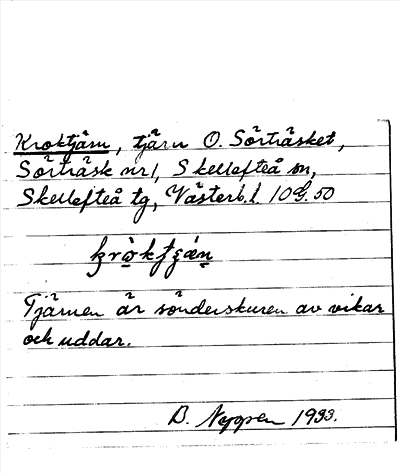 Kroktjärn, tjärn O. Sörträsket,
Sörträsk nr 1, Skellefteå sn,
Skellefteå tg, Västerb. l. 10 G. 50
Tjärnen är sönderskuren av vikar
och uddar.
B. Nygren 1933.